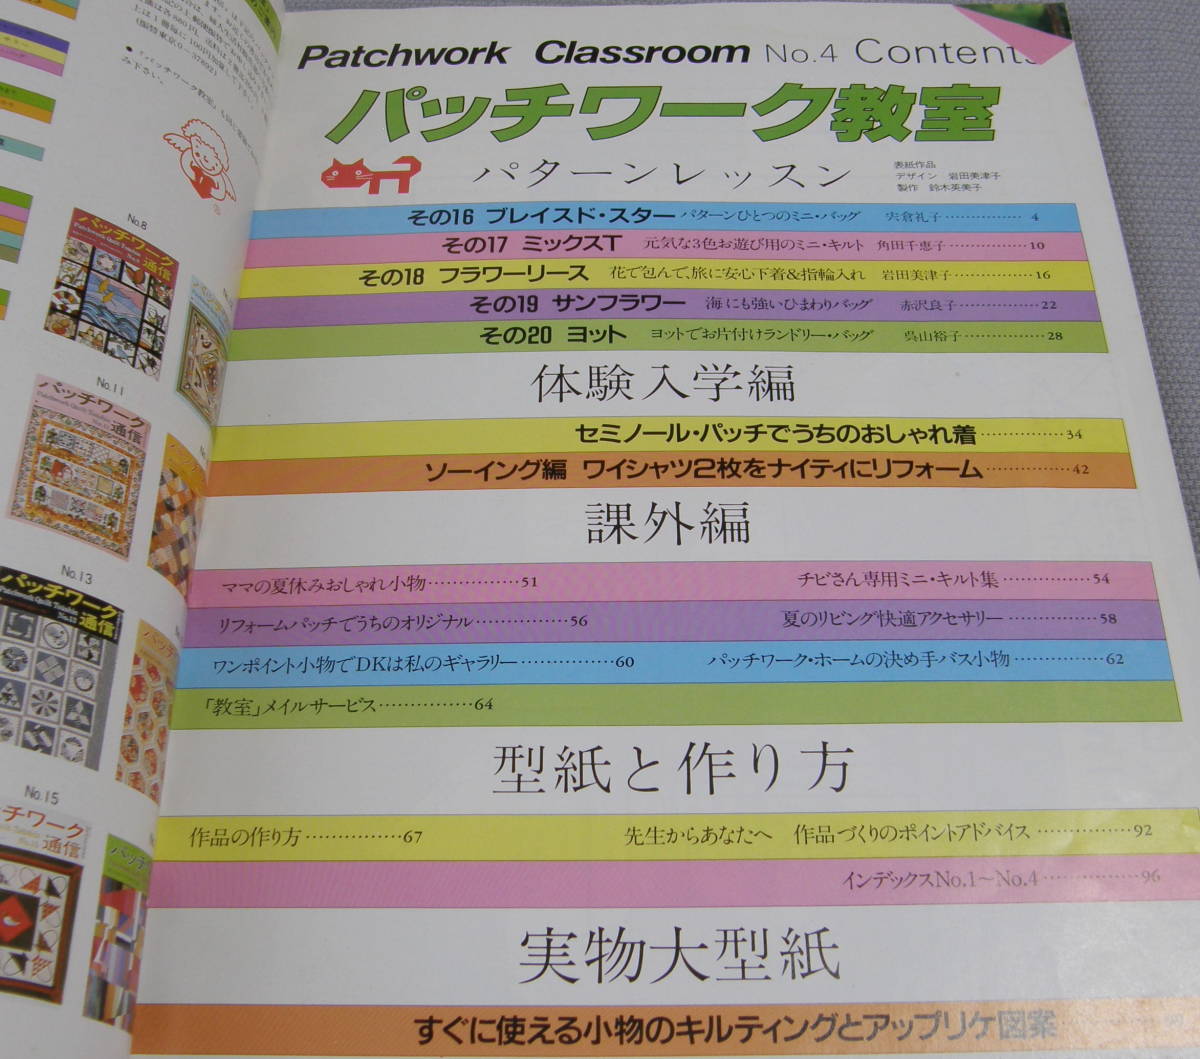 み下さい。
No.8
パッチワーク
通信
No.11
パッチワーク
通信
No.13
パッチワーク
通信
No.15
チワーク
通信
Patchwork Classroom No.4 Contents
パッチワーク教室
パターンレッスン
表紙作品
デザイン 岩田美津子
製作 鈴木英美子
その16 ブレイスド・スター パターンひとつのミニ・バッグ 宍倉礼子……………4
その17 ミックスT 元気な3色お遊び用のミニ・キルト 角田千恵子……………10
その18 フラワーリース 花で包んで、旅に安心下着&指輪入れ 岩田美津子……………16
その19 サンフラワー 海にも強いひまわりバッグ 赤沢良子……………22
その20 ヨット ヨットでお片付けランドリー・バッグ 呉山裕子……………28
体験入学編
セミノール・パッチでうちのおしゃれ着……………34
ソーイング編 ワイシャツ2枚をナイティにリフォーム……………42
課外編
ママの夏休みおしゃれ小物……………51
チビさん専用ミニ・キルト集……………54
リフォームパッチでうちのオリジナル……………56
夏のリビング快適アクセサリー……………58
ワンポイント小物でDKは私のギャラリー……………60
パッチワーク・ホームの決め手バス小物……………62
「教室」メイルサービス……………64
型紙と作り方
作品の作り方……………67
先生からあなたへ 作品づくりのポイントアドバイス……………92
インデックスNo.1〜No.4……………96
実物大型紙
すぐに使える小物のキルティングとアップリケ図案